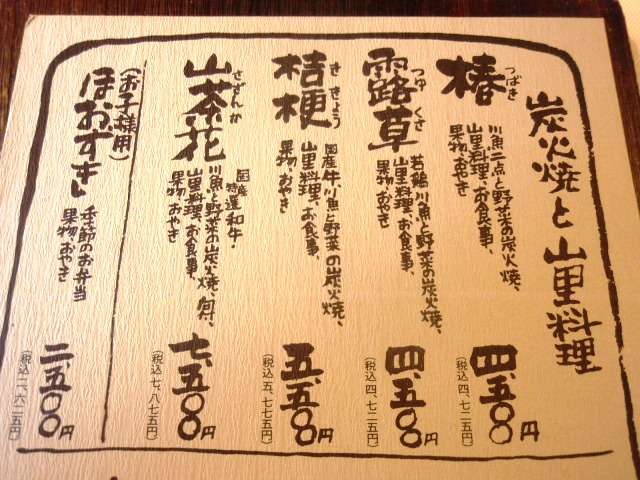 炭火焼と山里料理
椿
つばき
川魚二点と野菜の炭火焼、
山里料理、お食事、
果物、おやき
四、五〇〇円
(税込四、七二五円)
露草
つゆくさ
若鶏、川魚と野菜の炭火焼、
山里料理、お食事、
果物、おやき
四、五〇〇円
(税込四、七二五円)
桔梗
ききょう
国産牛、川魚と野菜の炭火焼、
山里料理、お食事、
果物、おやき
五、五〇〇円
(税込五、七七五円)
山茶花
さざんか
国産特選和牛・
川魚と野菜の炭火焼、
山里料理、お食事、
果物、おやき
七、五〇〇円
(税込七、八七五円)
(お子様用)
ほおずき
季節のお弁当
果物、おやき
二、五〇〇円
(税込二、六二五円)